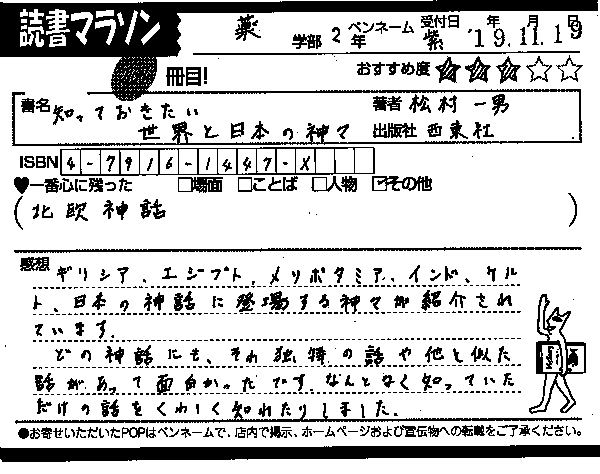 読書マラソン
薬 学部 2 年 ペンネーム 紫 受付日 '19年 11月 19日
冊目!
おすすめ度 ★★★☆☆
書名 知っておきたい 世界と日本の神々
著者 松村 一男
出版社 西東社
ISBN 4-7916-1447-X
♥一番心に残った □場面 □ことば □人物 ☑その他
(北欧神話)
感想
ギリシア、エジプト、メソポタミア、インド、ケル
ト、日本の神話に登場する神々が紹介され
ています。
どの神話にも、それ独特の話や他と似た
話があって面白かったです。なんとなく知っていた
だけの話をくわしく知れたりしました。
●お寄せいただいたPOPはペンネームで、店内で掲示、ホームページおよび宣伝物への転載をご了承ください。